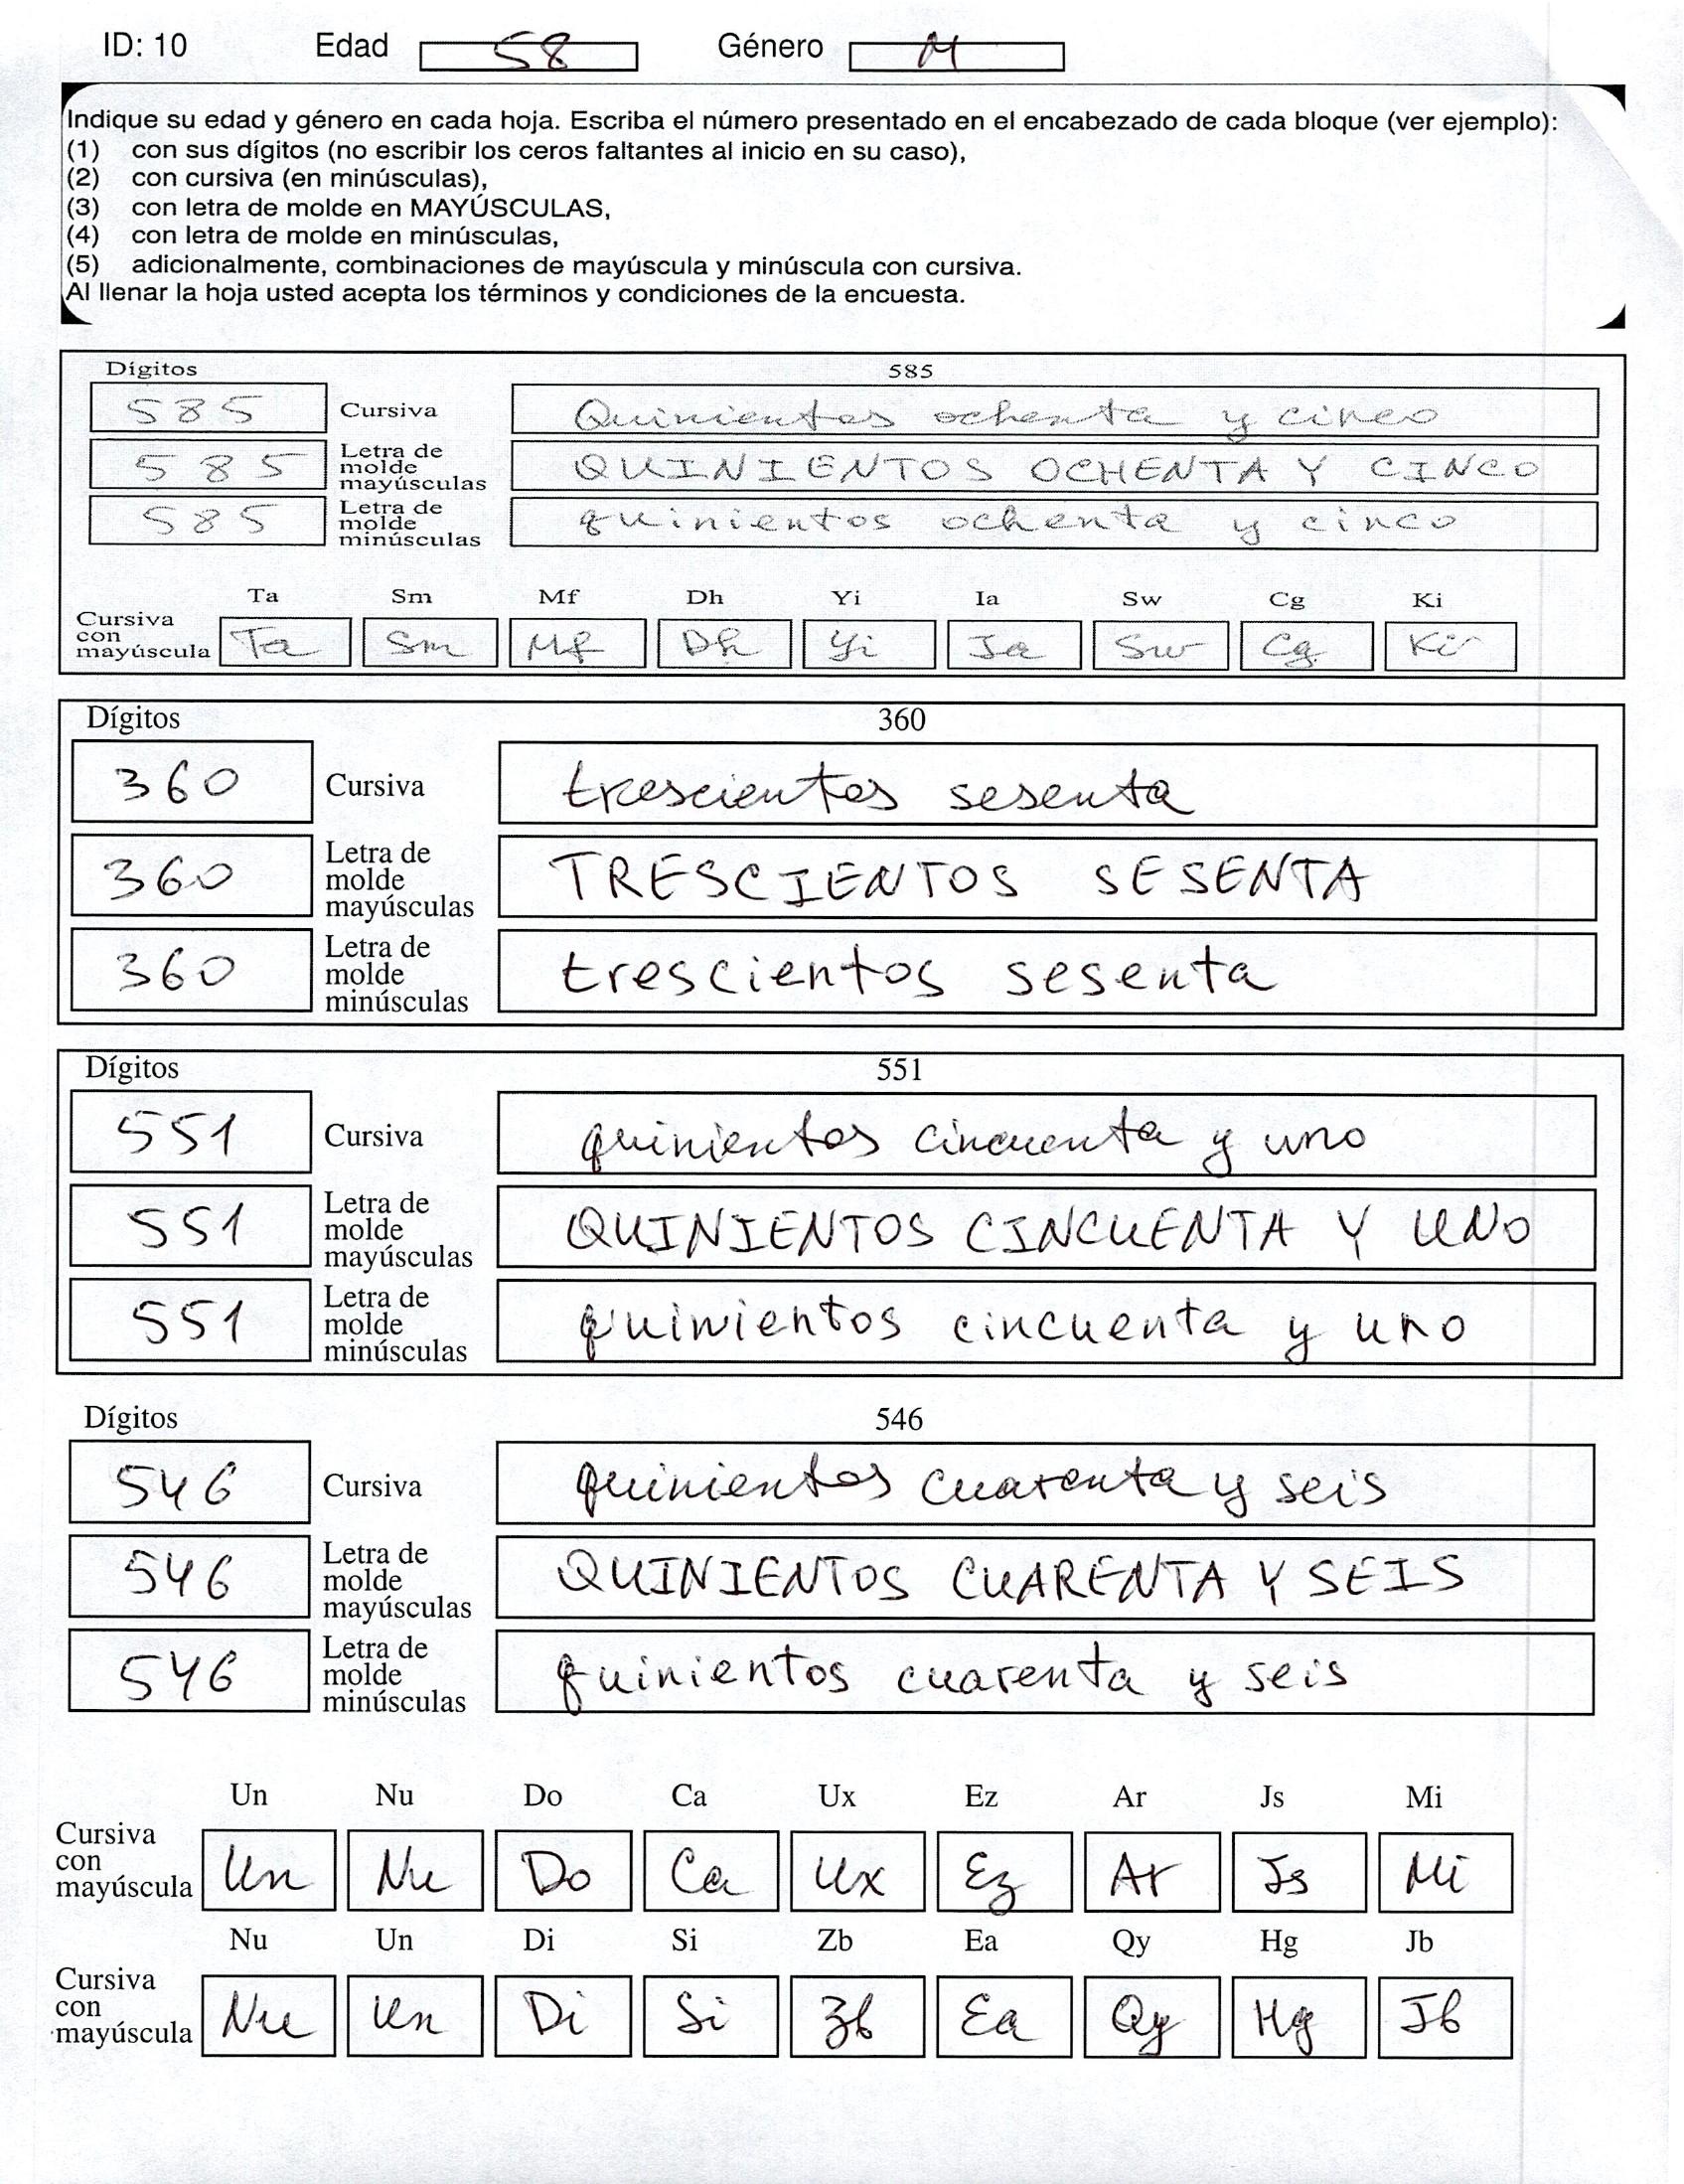 ID: 10 Edad 58 Género M
Indique su edad y género en cada hoja. Escriba el número presentado en el encabezado de cada bloque (ver ejemplo):
(1) con sus dígitos (no escribir los ceros faltantes al inicio en su caso),
(2) con cursiva (en minúsculas),
(3) con letra de molde en MAYÚSCULAS,
(4) con letra de molde en minúsculas,
(5) adicionalmente, combinaciones de mayúscula y minúscula con cursiva.
Al llenar la hoja usted acepta los términos y condiciones de la encuesta.
Dígitos 585
585 Cursiva Quinientos ochenta y cinco
585 Letra de molde mayúsculas QUINIENTOS OCHENTA Y CINCO
585 Letra de molde minúsculas quinientos ochenta y cinco
Ta Sm Mf Dh Yi Ia Sw Cg Ki
Cursiva con mayúscula Ta Sm Mf Dh Yi Ia Sw Cg Ki
Dígitos 360
360 Cursiva trescientos sesenta
360 Letra de molde mayúsculas TRESCIENTOS SESENTA
360 Letra de molde minúsculas trescientos sesenta
Dígitos 551
551 Cursiva quinientos cincuenta y uno
551 Letra de molde mayúsculas QUINIENTOS CINCUENTA Y UNO
551 Letra de molde minúsculas quinientos cincuenta y uno
Dígitos 546
546 Cursiva quinientos cuarenta y seis
546 Letra de molde mayúsculas QUINIENTOS CUARENTA Y SEIS
546 Letra de molde minúsculas quinientos cuarenta y seis
Un Nu Do Ca Ux Ez Ar Js Mi
Cursiva con mayúscula Un Nu Do Ca Ux Ez Ar Js Mi
Nu Un Di Si Zb Ea Qy Hg Jb
Cursiva con mayúscula Nu Un Di Si Zb Ea Qy Hg Jb